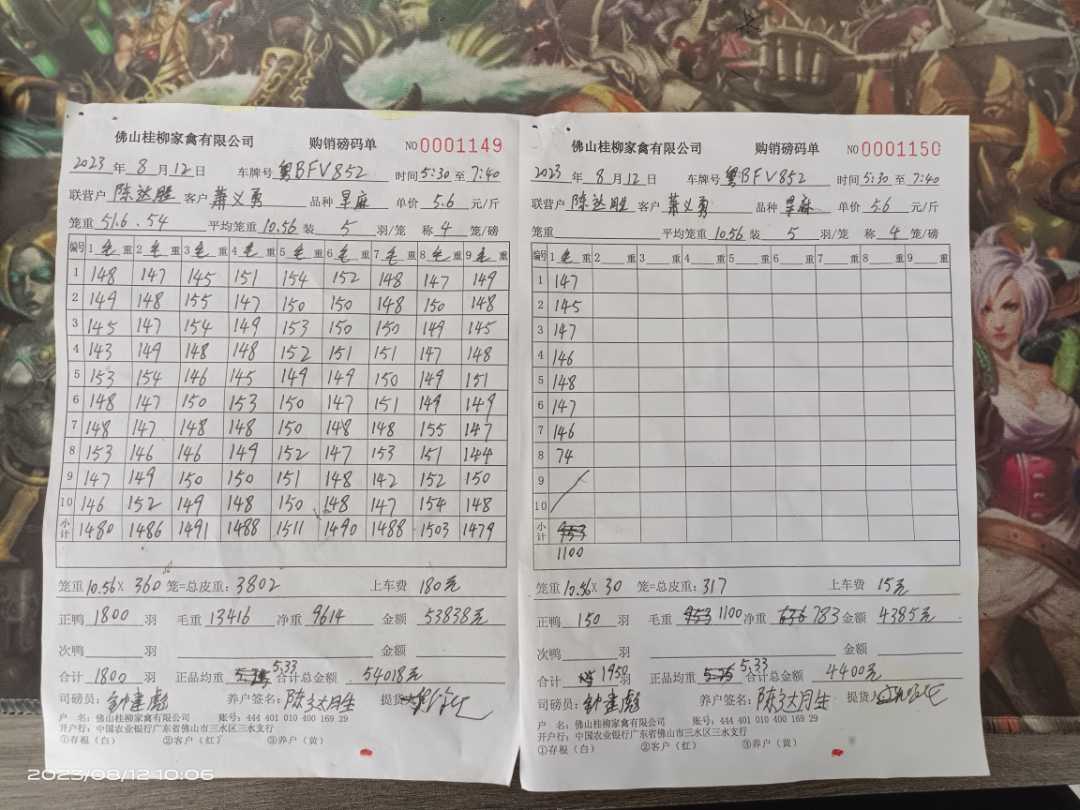 佛山桂柳家禽有限公司 购销磅码单 NO 0001149
2023年8月12日 车牌号 粤BFV852 时间 5:30 至 7:40
联营户 陈达胜 客户 萧义勇 品种 早麻 单价 5.6 元/斤
笼重 51.6.54 平均笼重 10.56 装 5 羽/笼 称 4 笼/磅
编号 1毛重 2毛重 3毛重 4毛重 5毛重 6毛重 7毛重 8毛重 9毛重
1 148 147 145 151 154 152 148 147 149
2 149 148 155 147 150 150 148 150 148
3 145 147 154 149 153 150 150 149 145
4 143 149 148 148 152 151 151 147 148
5 153 154 146 145 149 149 150 149 151
6 148 147 150 153 150 147 151 149 149
7 148 147 148 148 150 148 148 155 147
8 153 146 146 149 152 147 153 151 144
9 147 149 150 150 151 148 142 152 150
10 146 152 149 148 150 148 147 154 148
小计 1480 1486 1491 1488 1511 1490 1488 1503 1479
笼重 10.56 × 360 笼=总皮重: 3802 上车费 180元
正鸭 1800 羽 毛重 13416 净重 9614 金额 53838元
次鸭 羽 金额
合计 1800 羽 正品均重 5.33 合计总金额 54018元
司磅员: 钟建彪 养户签名: 陈达胜 提货
户 名: 佛山桂柳家禽有限公司 账号: 444 401 010 400 169 29
开户行: 中国农业银行广东省佛山市三水区三水支行
①存根(白) ②客户(红) ③养户(黄)
佛山桂柳家禽有限公司 购销磅码单 NO 0001150
2023年8月12日 车牌号 粤BFV852 时间 5:30 至 7:40
联营户 陈达胜 客户 萧义勇 品种 早麻 单价 5.6 元/斤
笼重 平均笼重 10.56 装 5 羽/笼 称 4 笼/磅
编号 1毛重 2 重 3 重 4 重 5 重 6 重 7 重 8 重 9 重
1 147
2 145
3 147
4 146
5 148
6 147
7 146
8 74
9
10
小计 953
1100
笼重 10.56 × 30 笼=总皮重: 317 上车费 15元
正鸭 150 羽 毛重 953 1100 净重 636 783 金额 4385元
次鸭 羽 金额
合计 1950 羽 正品均重 5.33 合计总金额 4400元
司磅员: 钟建彪 养户签名: 陈达胜 提货
户 名: 佛山桂柳家禽有限公司 账号: 444 401 010 400 169 29
开户行: 中国农业银行广东省佛山市三水区三水支行
①存根(白) ②客户(红) ③养户(黄)
2023/08/12 10:06